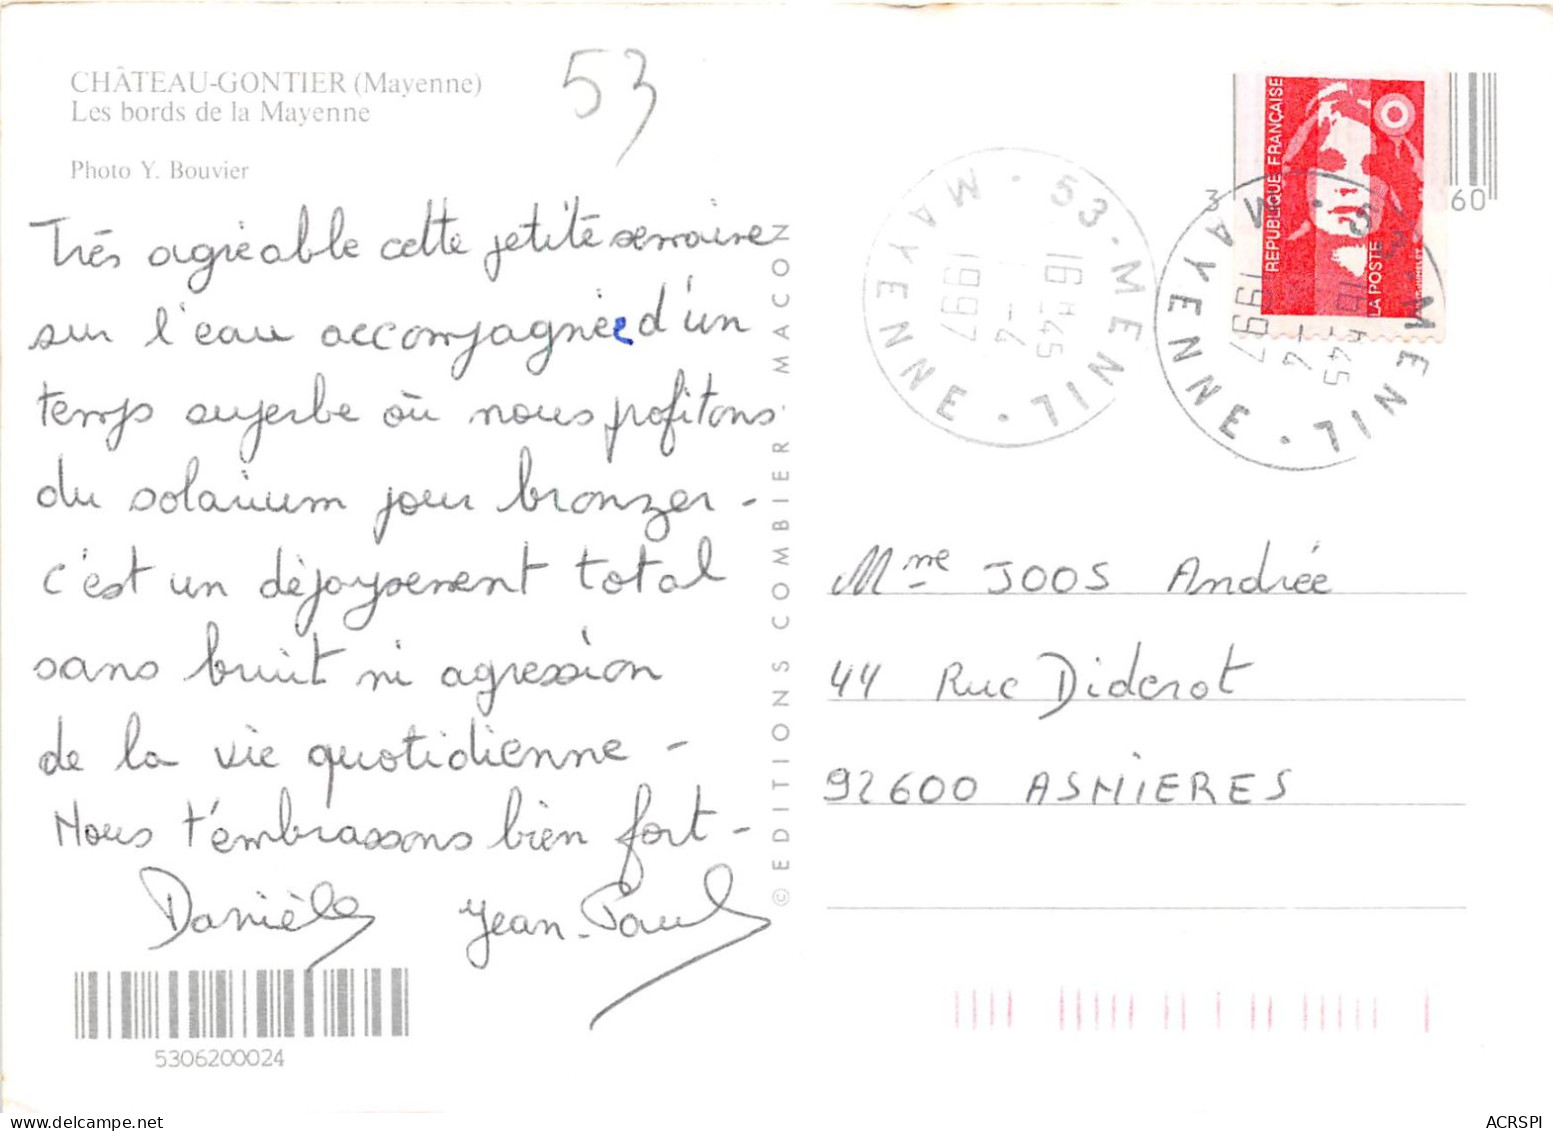 CHÂTEAU-GONTIER (Mayenne)
Les bords de la Mayenne
Photo Y. Bouvier
53
Très agréable cette petite semaine
sur l'eau accompagnée d'un
temps superbe où nous profitons
du solarium pour bronzer -
c'est un dépaysement total
sans bruit ni agression
de la vie quotidienne -
Nous t'embrassons bien fort -
Danièle Jean-Paul
5306200024
© EDITIONS COMBIER MACON
53 - MENIL
MAYENNE
16H45
-4
1997
RÉPUBLIQUE FRANÇAISE
LA POSTE
3
60
53 - MENIL
MAYENNE
16H45
-4
1997
Mme JOOS Andrée
44 Rue Diderot
92600 ASNIERES
ACRSPI